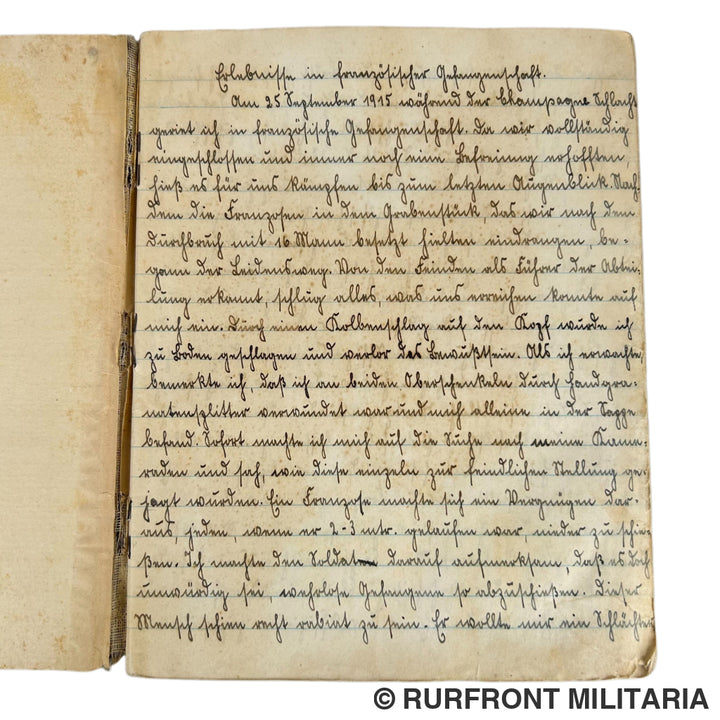 Erlebnisse in französischer Gefangenschaft.
Am 25 September 1915 während der Champagne Schlacht
geriet ich in französische Gefangenschaft. Da wir vollständig
eingeschlossen und immer noch eine Befreiung erhofften,
hieß es für uns kämpfen bis zum letzten Augenblick. Nach-
dem die Franzosen in dem Grabenstück, das wir nach dem
Durchbruch mit 16 Mann besetzt hielten eindrangen, be-
gann der Leidensweg. Von den Feinden als Führer der Abtei-
lung erkannt, schlug alles, was uns erreichen konnte auf
mich ein. Durch einen Kolbenschlag auf den Kopf wurde ich
zu Boden geschlagen und verlor das Bewußtsein. Als ich erwachte,
bemerkte ich, daß ich an beiden Oberschenkeln durch Handgra-
natensplitter verwundet war und mich alleine in der Sappe
befand. Sofort machte ich mich auf die Suche nach meine Kame-
raden und sah, wie diese einzeln zur feindlichen Stellung ge-
jagt wurden. Ein Franzose machte sich ein Vergnügen dar-
aus, jeden, wenn er 2-3 mtr. gelaufen war, nieder zu schie-
ßen. Ich machte den Soldat darauf aufmerksam, daß es doch
unwürdig sei, wehrlose Gefangene so abzuschießen. Dieser
Mensch schien recht rabiat zu sein. Er wollte mir ein Schlächter
© RURFRONT MILITARIA